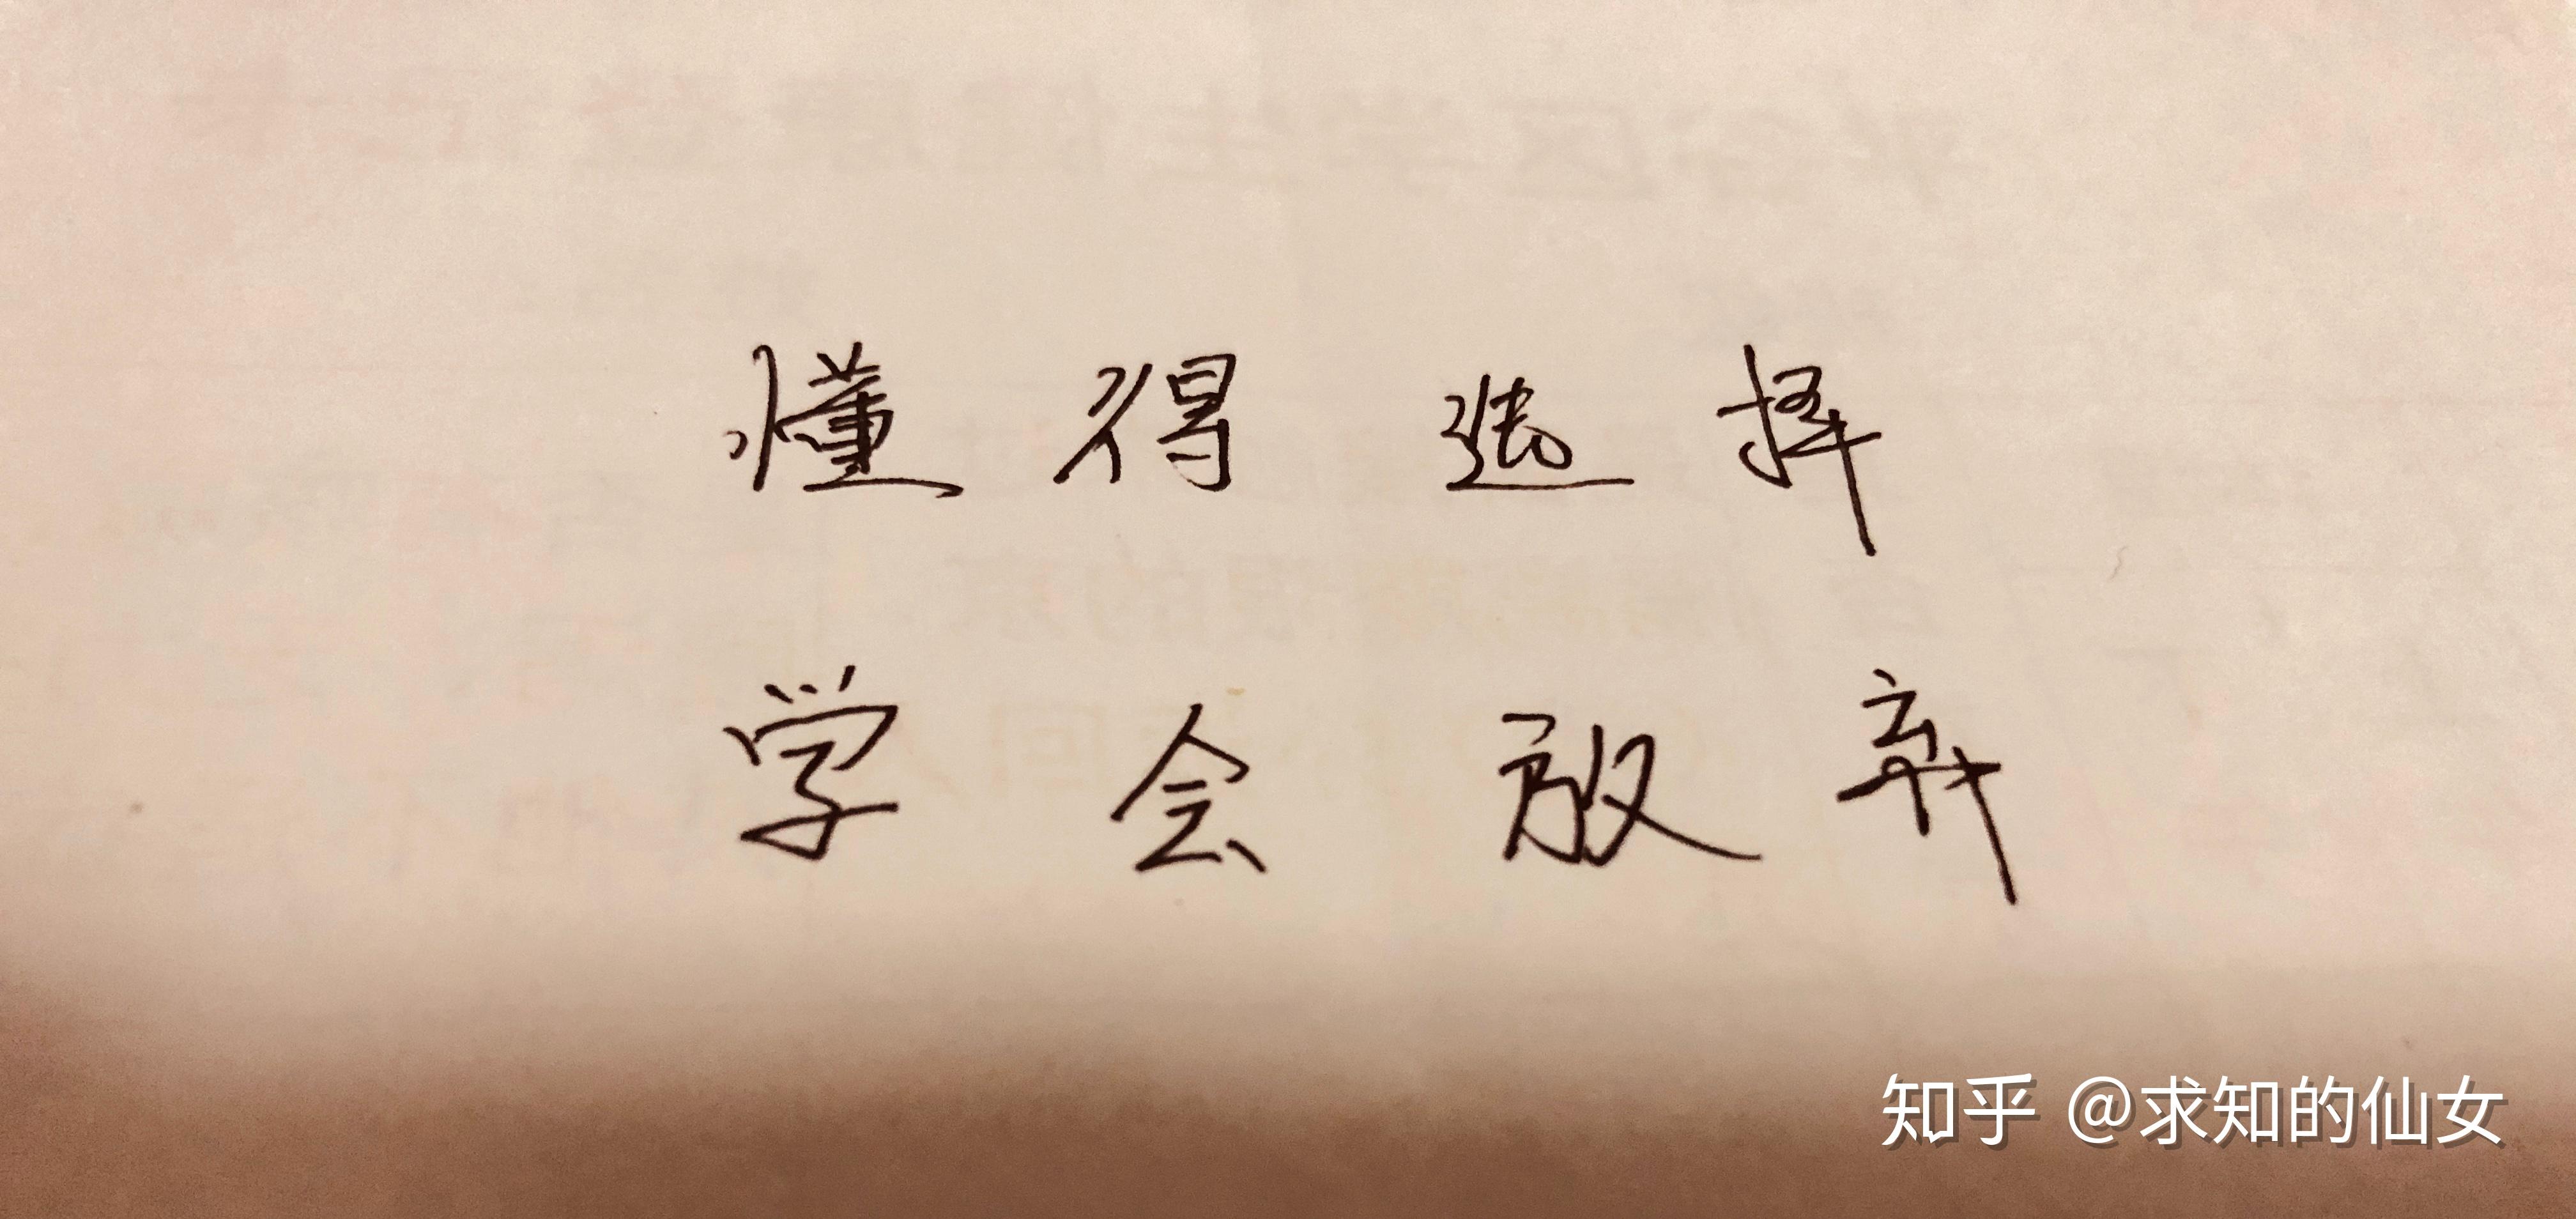 懂得选择
学会放弃
知乎 @求知的仙女